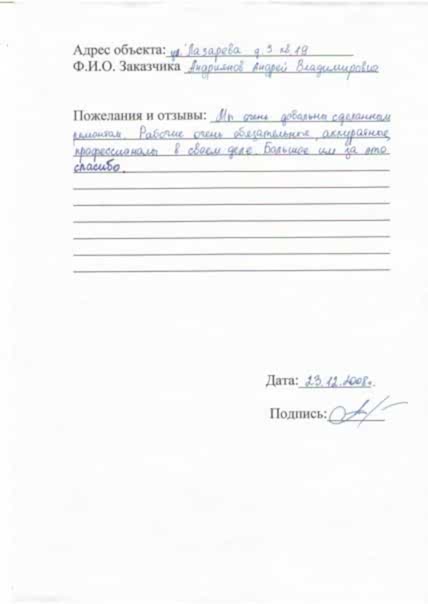 Адрес объекта: ул. Лазарева д.3 кв.19
Ф.И.О. Заказчика Андриянов Андрей Владимирович
Пожелания и отзывы: Мы очень довольны сделанным
ремонтом. Рабочие очень обязательные, аккуратные,
профессионалы в своем деле. Большое им за это
спасибо.
Дата: 23.12.2008г.
Подпись: